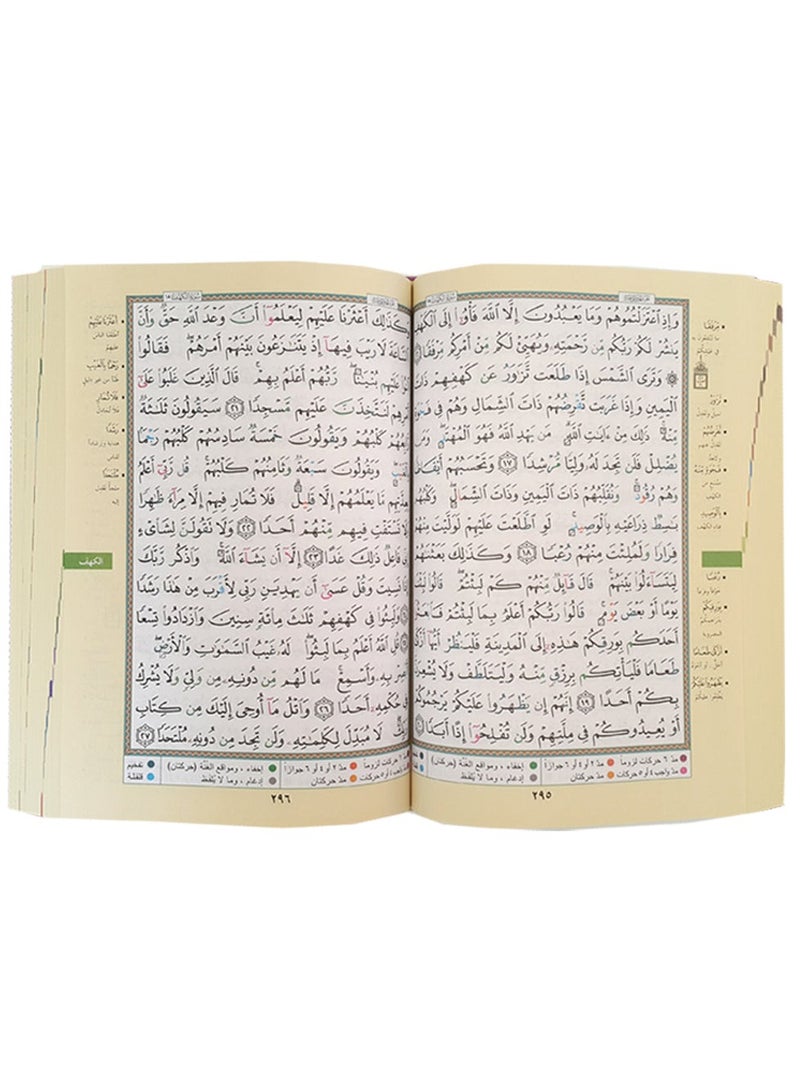 وَإِذِ ٱعْتَزَلْتُمُوهُمْ وَمَا يَعْبُدُونَ إِلَّا ٱللَّهَ فَأْوُۥٓا۟ إِلَى ٱلْكَهْفِ
يَنشُرْ لَكُمْ رَبُّكُم مِّن رَّحْمَتِهِۦ وَيُهَيِّئْ لَكُم مِّنْ أَمْرِكُم مِّرْفَقًا ١٦
وَتَرَى ٱلشَّمْسَ إِذَا طَلَعَت تَّزَٰوَرُ عَن كَهْفِهِمْ ذَاتَ
ٱلْيَمِينِ وَإِذَا غَرَبَت تَّقْرِضُهُمْ ذَاتَ ٱلشِّمَالِ وَهُمْ فِى فَجْوَةٍ
مِّنْهُ ۚ ذَٰلِكَ مِنْ ءَايَٰتِ ٱللَّهِ ۗ مَن يَهْدِ ٱللَّهُ فَهُوَ ٱلْمُهْتَدِ ۖ وَمَن
يُضْلِلْ فَلَن تَجِدَ لَهُۥ وَلِيًّا مُّرْشِدًا ١٧ وَتَحْسَبُهُمْ أَيْقَاظًا
وَهُمْ رُقُودٌ ۚ وَنُقَلِّبُهُمْ ذَاتَ ٱلْيَمِينِ وَذَاتَ ٱلشِّمَالِ ۖ وَكَلْبُهُم
بَٰسِطٌ ذِرَاعَيْهِ بِٱلْوَصِيدِ ۚ لَوِ ٱطَّلَعْتَ عَلَيْهِمْ لَوَلَّيْتَ مِنْهُمْ
فِرَارًا وَلَمُلِئْتَ مِنْهُمْ رُعْبًا ١٨ وَكَذَٰلِكَ بَعَثْنَٰهُمْ
لِيَتَسَآءَلُوا۟ بَيْنَهُمْ ۚ قَالَ قَآئِلٌ مِّنْهُمْ كَمْ لَبِثْتُمْ ۖ قَالُوا۟ لَبِثْنَا
يَوْمًا أَوْ بَعْضَ يَوْمٍ ۚ قَالُوا۟ رَبُّكُمْ أَعْلَمُ بِمَا لَبِثْتُمْ فَٱبْعَثُوٓا۟
أَحَدَكُم بِوَرِقِكُمْ هَٰذِهِۦٓ إِلَى ٱلْمَدِينَةِ فَلْيَنظُرْ أَيُّهَآ أَزْكَىٰ
طَعَامًا فَلْيَأْتِكُم بِرِزْقٍ مِّنْهُ وَلْيَتَلَطَّفْ وَلَا يُشْعِرَنَّ
بِكُمْ أَحَدًا ١٩ إِنَّهُمْ إِن يَظْهَرُوا۟ عَلَيْكُمْ يَرْجُمُوكُمْ
أَوْ يُعِيدُوكُمْ فِى مِلَّتِهِمْ وَلَن تُفْلِحُوٓا۟ إِذًا أَبَدًا ٢٠
مِّرْفَقًا
تَزَاوَرُ
تَقْرِضُهُمْ
فَجْوَةٍ مِنْهُ
بِالْوَصِيدِ
رُعْبًا
بِوَرِقِكُمْ
أَزْكَىٰ طَعَامًا
يَظْهَرُوا عَلَيْكُمْ
مدّ ٦ حركات لزوماً مدّ ٢ أو ٤ أو ٦ جوازاً إخفاء، ومواقع الغُنَّة (حركتان)
مدّ واجب ٤ أو ٥ حركات مدّ حركتان إدغام، وما لا يُلفَظ
٢٩٥
وَكَذَٰلِكَ أَعْثَرْنَا عَلَيْهِمْ لِيَعْلَمُوٓا۟ أَنَّ وَعْدَ ٱللَّهِ حَقٌّ وَأَنَّ
ٱلسَّاعَةَ لَا رَيْبَ فِيهَآ إِذْ يَتَنَٰزَعُونَ بَيْنَهُمْ أَمْرَهُمْ ۖ فَقَالُوا۟
ٱبْنُوا۟ عَلَيْهِم بُنْيَٰنًا ۖ رَّبُّهُمْ أَعْلَمُ بِهِمْ ۚ قَالَ ٱلَّذِينَ غَلَبُوا۟ عَلَىٰٓ
أَمْرِهِمْ لَنَتَّخِذَنَّ عَلَيْهِم مَّسْجِدًا ٢١ سَيَقُولُونَ ثَلَٰثَةٌ
رَّابِعُهُمْ كَلْبُهُمْ وَيَقُولُونَ خَمْسَةٌ سَادِسُهُمْ كَلْبُهُمْ رَجْمًۢا
بِٱلْغَيْبِ ۖ وَيَقُولُونَ سَبْعَةٌ وَثَامِنُهُمْ كَلْبُهُمْ ۚ قُل رَّبِّىٓ أَعْلَمُ
بِعِدَّتِهِم مَّا يَعْلَمُهُمْ إِلَّا قَلِيلٌ ۗ فَلَا تُمَارِ فِيهِمْ إِلَّا مِرَآءً ظَٰهِرًا
وَلَا تَسْتَفْتِ فِيهِم مِّنْهُمْ أَحَدًا ٢٢ وَلَا تَقُولَنَّ لِشَا۟ىْءٍ
إِنِّى فَاعِلٌ ذَٰلِكَ غَدًا ٢٣ إِلَّآ أَن يَشَآءَ ٱللَّهُ ۚ وَٱذْكُر رَّبَّكَ
إِذَا نَسِيتَ وَقُلْ عَسَىٰٓ أَن يَهْدِيَنِ رَبِّى لِأَقْرَبَ مِنْ هَٰذَا رَشَدًا
٢٤ وَلَبِثُوا۟ فِى كَهْفِهِمْ ثَلَٰثَ مِا۟ئَةٍ سِنِينَ وَٱزْدَادُوا۟ تِسْعًا
٢٥ قُلِ ٱللَّهُ أَعْلَمُ بِمَا لَبِثُوا۟ ۖ لَهُۥ غَيْبُ ٱلسَّمَٰوَٰتِ وَٱلْأَرْضِ ۖ
أَبْصِرْ بِهِۦ وَأَسْمِعْ ۚ مَا لَهُم مِّن دُونِهِۦ مِن وَلِىٍّ وَلَا يُشْرِكُ
فِى حُكْمِهِۦٓ أَحَدًا ٢٦ وَٱتْلُ مَآ أُوحِىَ إِلَيْكَ مِن كِتَابِ
رَبِّكَ ۖ لَا مُبَدِّلَ لِكَلِمَٰتِهِۦ وَلَن تَجِدَ مِن دُونِهِۦ مُلْتَحَدًا ٢٧
أَعْثَرْنَا عَلَيْهِمْ
رَجْمًا بِالْغَيْبِ
فَلَا تُمَارِ
رَشَدًا
مُلْتَحَدًا
الكهف
مدّ ٦ حركات لزوماً مدّ ٢ أو ٤ أو ٦ جوازاً إخفاء، ومواقع الغُنَّة (حركتان) تفخيم
مدّ واجب ٤ أو ٥ حركات مدّ حركتان إدغام، وما لا يُلفَظ قلقلة
٢٩٦